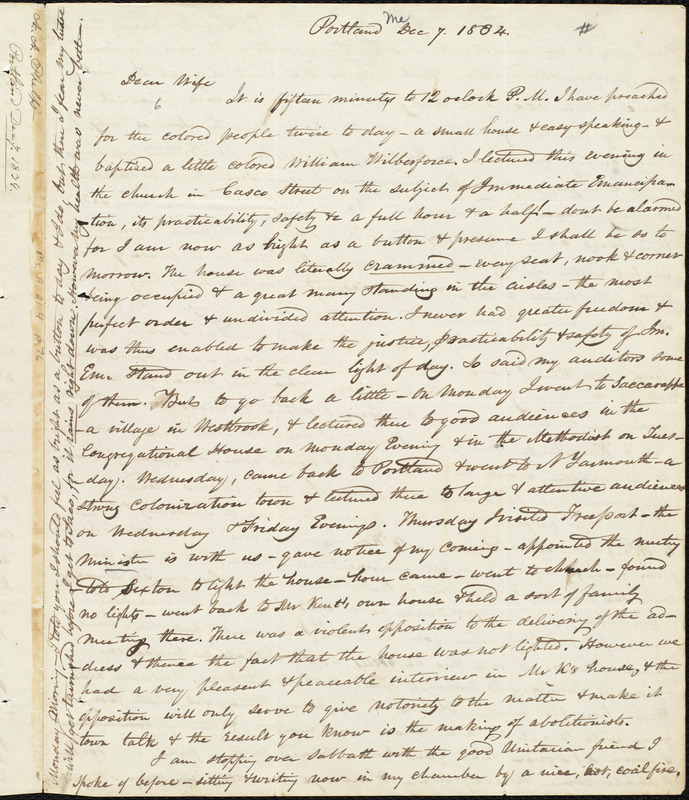 Portland Me Dec 7. 1834.
Dear Wife
It is fifteen minutes to 12 oclock P.M. I have preached
for the colored people twice to day – a small house & easy speaking – &
baptised a little colored William Wilberforce. I lectured this evening in
the church in Casco Street on the subject of Immediate Emancipa-
tion, its practicability, safety &c a full hour & a half! – dont be alarmed
for I am now as bright as a button & presume I shall be so to
morrow. The house was literally crammed – every seat, nook & corner
being occupied & a great many standing in the aisles – the most
perfect order & undivided attention. I never had greater freedom &
was thus enabled to make the justice, practicability & safety of Im.
Em. stand out in the clear light of day. So said my auditors some
of them. But to go back a little – On Monday I went to Saccarappa
a village in Westbrook, & lectured there to good audiences in the
Congregational House on Monday Evening & in the Methodist on Tues-
day. Wednesday, came back to Portland & went to N Yarmouth – a
strong colonization town & lectured there to large & attentive audiences
on Wednesday & Friday Evenings. Thursday I visited Freeport – the
minister is with us – gave notice of my coming – appointed the meeting
told Sexton to light the house – hour came – went to church – found
no lights – went back to Mr Kent's own house & held a sort of family
meeting there. There was a violent opposition to the delivering of the ad-
dress & thence the fact that the house was not lighted. However we
had a very pleasant & peaceable interview in Mr K's house, & the
opposition will only serve to give notoriety to the matter & make it
town talk & the result you know is the making of abolitionists.
I am stopping over Sabbath with the good Unitarian friend I
spoke of before – sitting & writing now in my chamber by a nice, hot, coal fire.
Monday Morning – I told you I should feel as bright as a button to day & I do but then I fear my lustre
will get tarnished before I get to Saco, for it rains right down. However my health was never better –